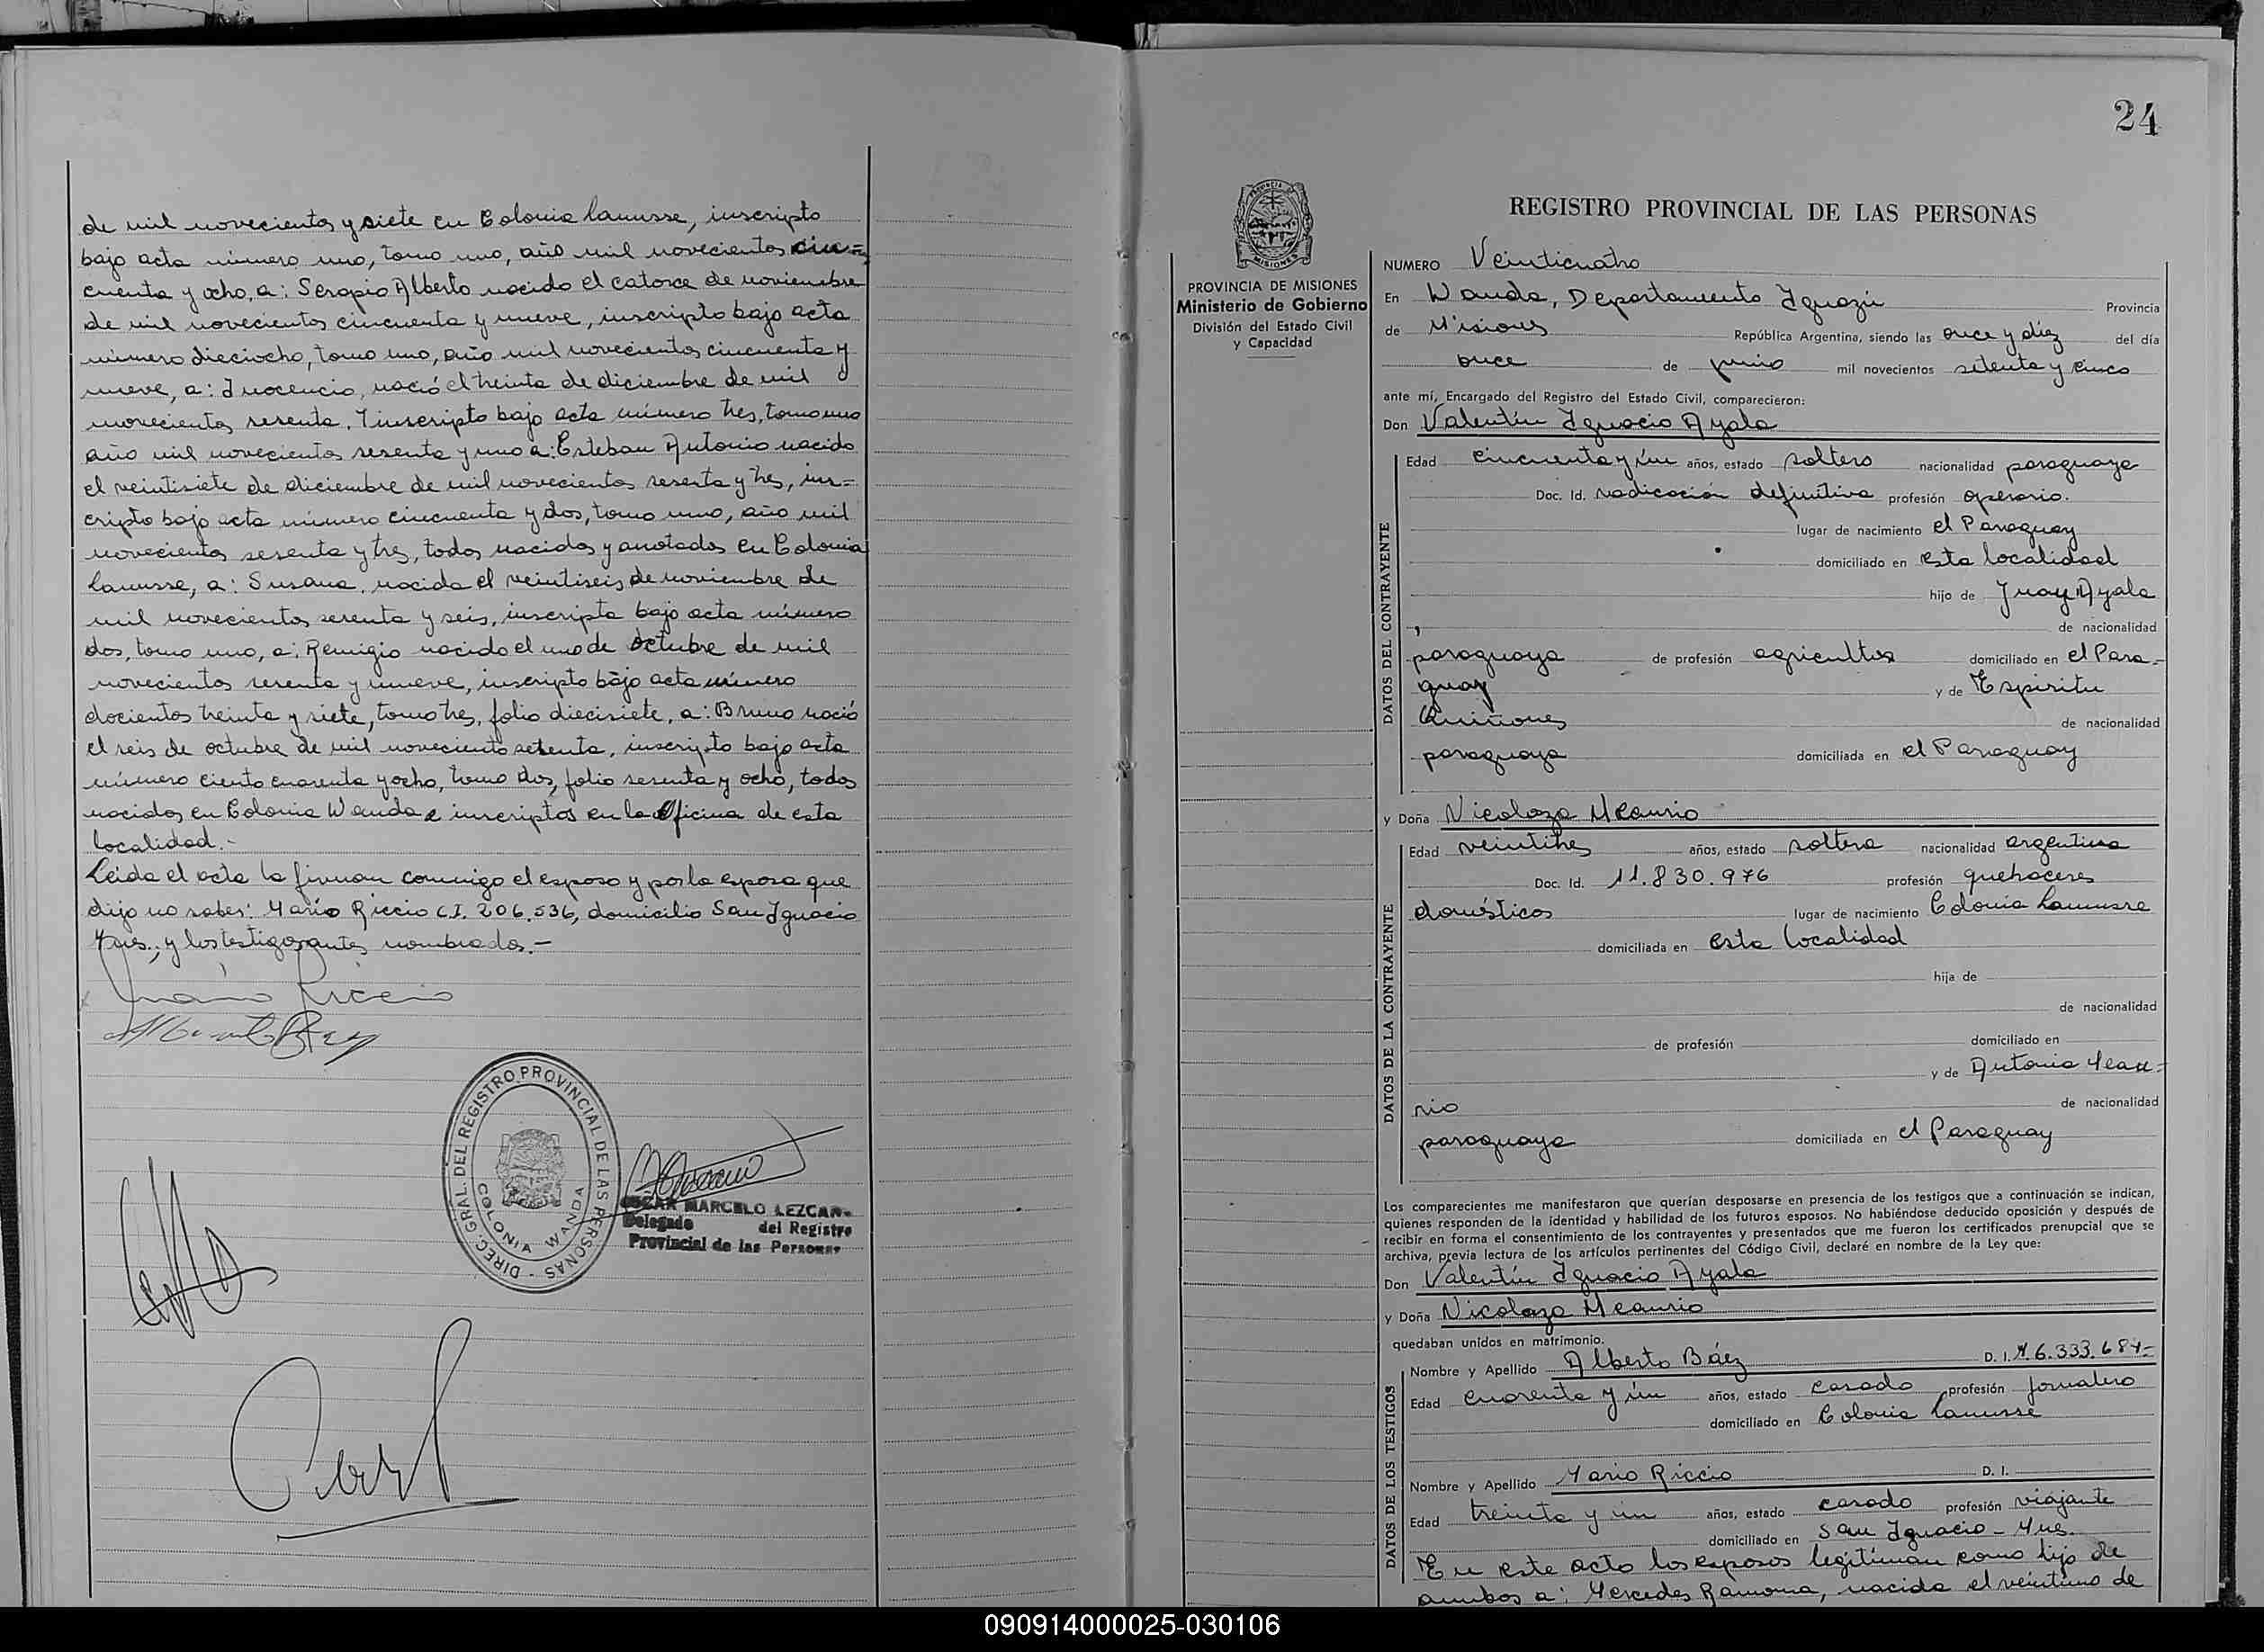 de mil novecientos y siete en Colonia Lanusse, inscripto
bajo acta número uno, tomo uno, año mil novecientos cin=
cuenta y ocho, a: Serapio Alberto nacido el catorce de noviembre
de mil novecientos cincuenta y nueve, inscripto bajo acta
número dieciocho, tomo uno, año mil novecientos cincuenta y
nueve, a: Inocencio, nació el treinta de diciembre de mil
novecientos sesenta. Inscripto bajo acta número tres, tomo uno
año mil novecientos sesenta y uno a: Esteban Antonio nacido
el veintisiete de diciembre de mil novecientos sesenta y tres, ins=
cripto bajo acta número cincuenta y dos, tomo uno, año mil
novecientos sesenta y tres, todos nacidos y anotados en Colonia
Lanusse, a: Susana, nacida el veintiseis de noviembre de
mil novecientos sesenta y seis, inscripta bajo acta número
dos, tomo uno, a: Remigio nacido el uno de octubre de mil
novecientos sesenta y nueve, inscripto bajo acta número
docientos treinta y siete, tomo tres, folio diecisiete, a: Bruno nació
el seis de octubre de mil novecientos setenta, inscripto bajo acta
número ciento cuarenta y ocho, tomo dos, folio sesenta y ocho, todos
nacidos en Colonia Wanda e inscriptos en la Oficina de esta
localidad.-
Leida el acta la firman conmigo el esposo y por la esposa que
dijo no saber: Mario Riccio C.I. 206.536, domicilio San Ignacio
Mnes., y los testigos antes nombrados.-
Mario Riccio
Alberto Baez
DIREC. GRAL. DEL REGISTRO PROVINCIAL DE LAS PERSONAS -
COLONIA WANDA
OSCAR MARCELO LEZCANO
Delegado del Registro
Provincial de las Personas
24
PROVINCIA DE MISIONES
Ministerio de Gobierno
División del Estado Civil
y Capacidad
REGISTRO PROVINCIAL DE LAS PERSONAS
NUMERO Veinticuatro
En Wanda, Departamento Iguazú Provincia
de Misiones República Argentina, siendo las once y diez del día
once de junio mil novecientos setenta y cinco
ante mí, Encargado del Registro del Estado Civil, comparecieron:
Don Valentín Ignacio Ayala
DATOS DEL CONTRAYENTE
Edad cincuenta y ún años, estado soltero nacionalidad paraguaya
Doc. Id. radicación definitiva profesión operario.
lugar de nacimiento el Paraguay
domiciliado en esta localidad
hijo de Juan Ayala
de nacionalidad
paraguaya de profesión agricultor domiciliado en el Para-
guay y de Espiritu
Quiñones de nacionalidad
paraguaya domiciliada en el Paraguay
y Doña Nicolaza Meaurio
DATOS DE LA CONTRAYENTE
Edad veintitres años, estado soltera nacionalidad argentina
Doc. Id. 11.830.976 profesión quehaceres
domésticos lugar de nacimiento Colonia Lanusse
domiciliada en esta localidad
hija de
de nacionalidad
de profesión domiciliado en
y de Antonia Meau-
rio de nacionalidad
paraguaya domiciliada en el Paraguay
Los comparecientes me manifestaron que querían desposarse en presencia de los testigos que a continuación se indican,
quienes responden de la identidad y habilidad de los futuros esposos. No habiéndose deducido oposición y después de
recibir en forma el consentimiento de los contrayentes y presentados que me fueron los certificados prenupcial que se
archiva, previa lectura de los artículos pertinentes del Código Civil, declaré en nombre de la Ley que:
Don Valentín Ignacio Ayala
y Doña Nicolaza Meaurio
quedaban unidos en matrimonio.
DATOS DE LOS TESTIGOS
Nombre y Apellido Alberto Báez D. I. M. 6.333.684-
Edad cuarenta y ún años, estado casado profesión jornalero
domiciliado en Colonia Lanusse
Nombre y Apellido Mario Riccio D. I.
Edad treinta y un años, estado casado profesión viajante
domiciliado en San Ignacio - Mnes.
En este acto los esposos legitiman como hijo de
ambos a: Mercedes Ramona, nacida el veintiuno de
090914000025-030106